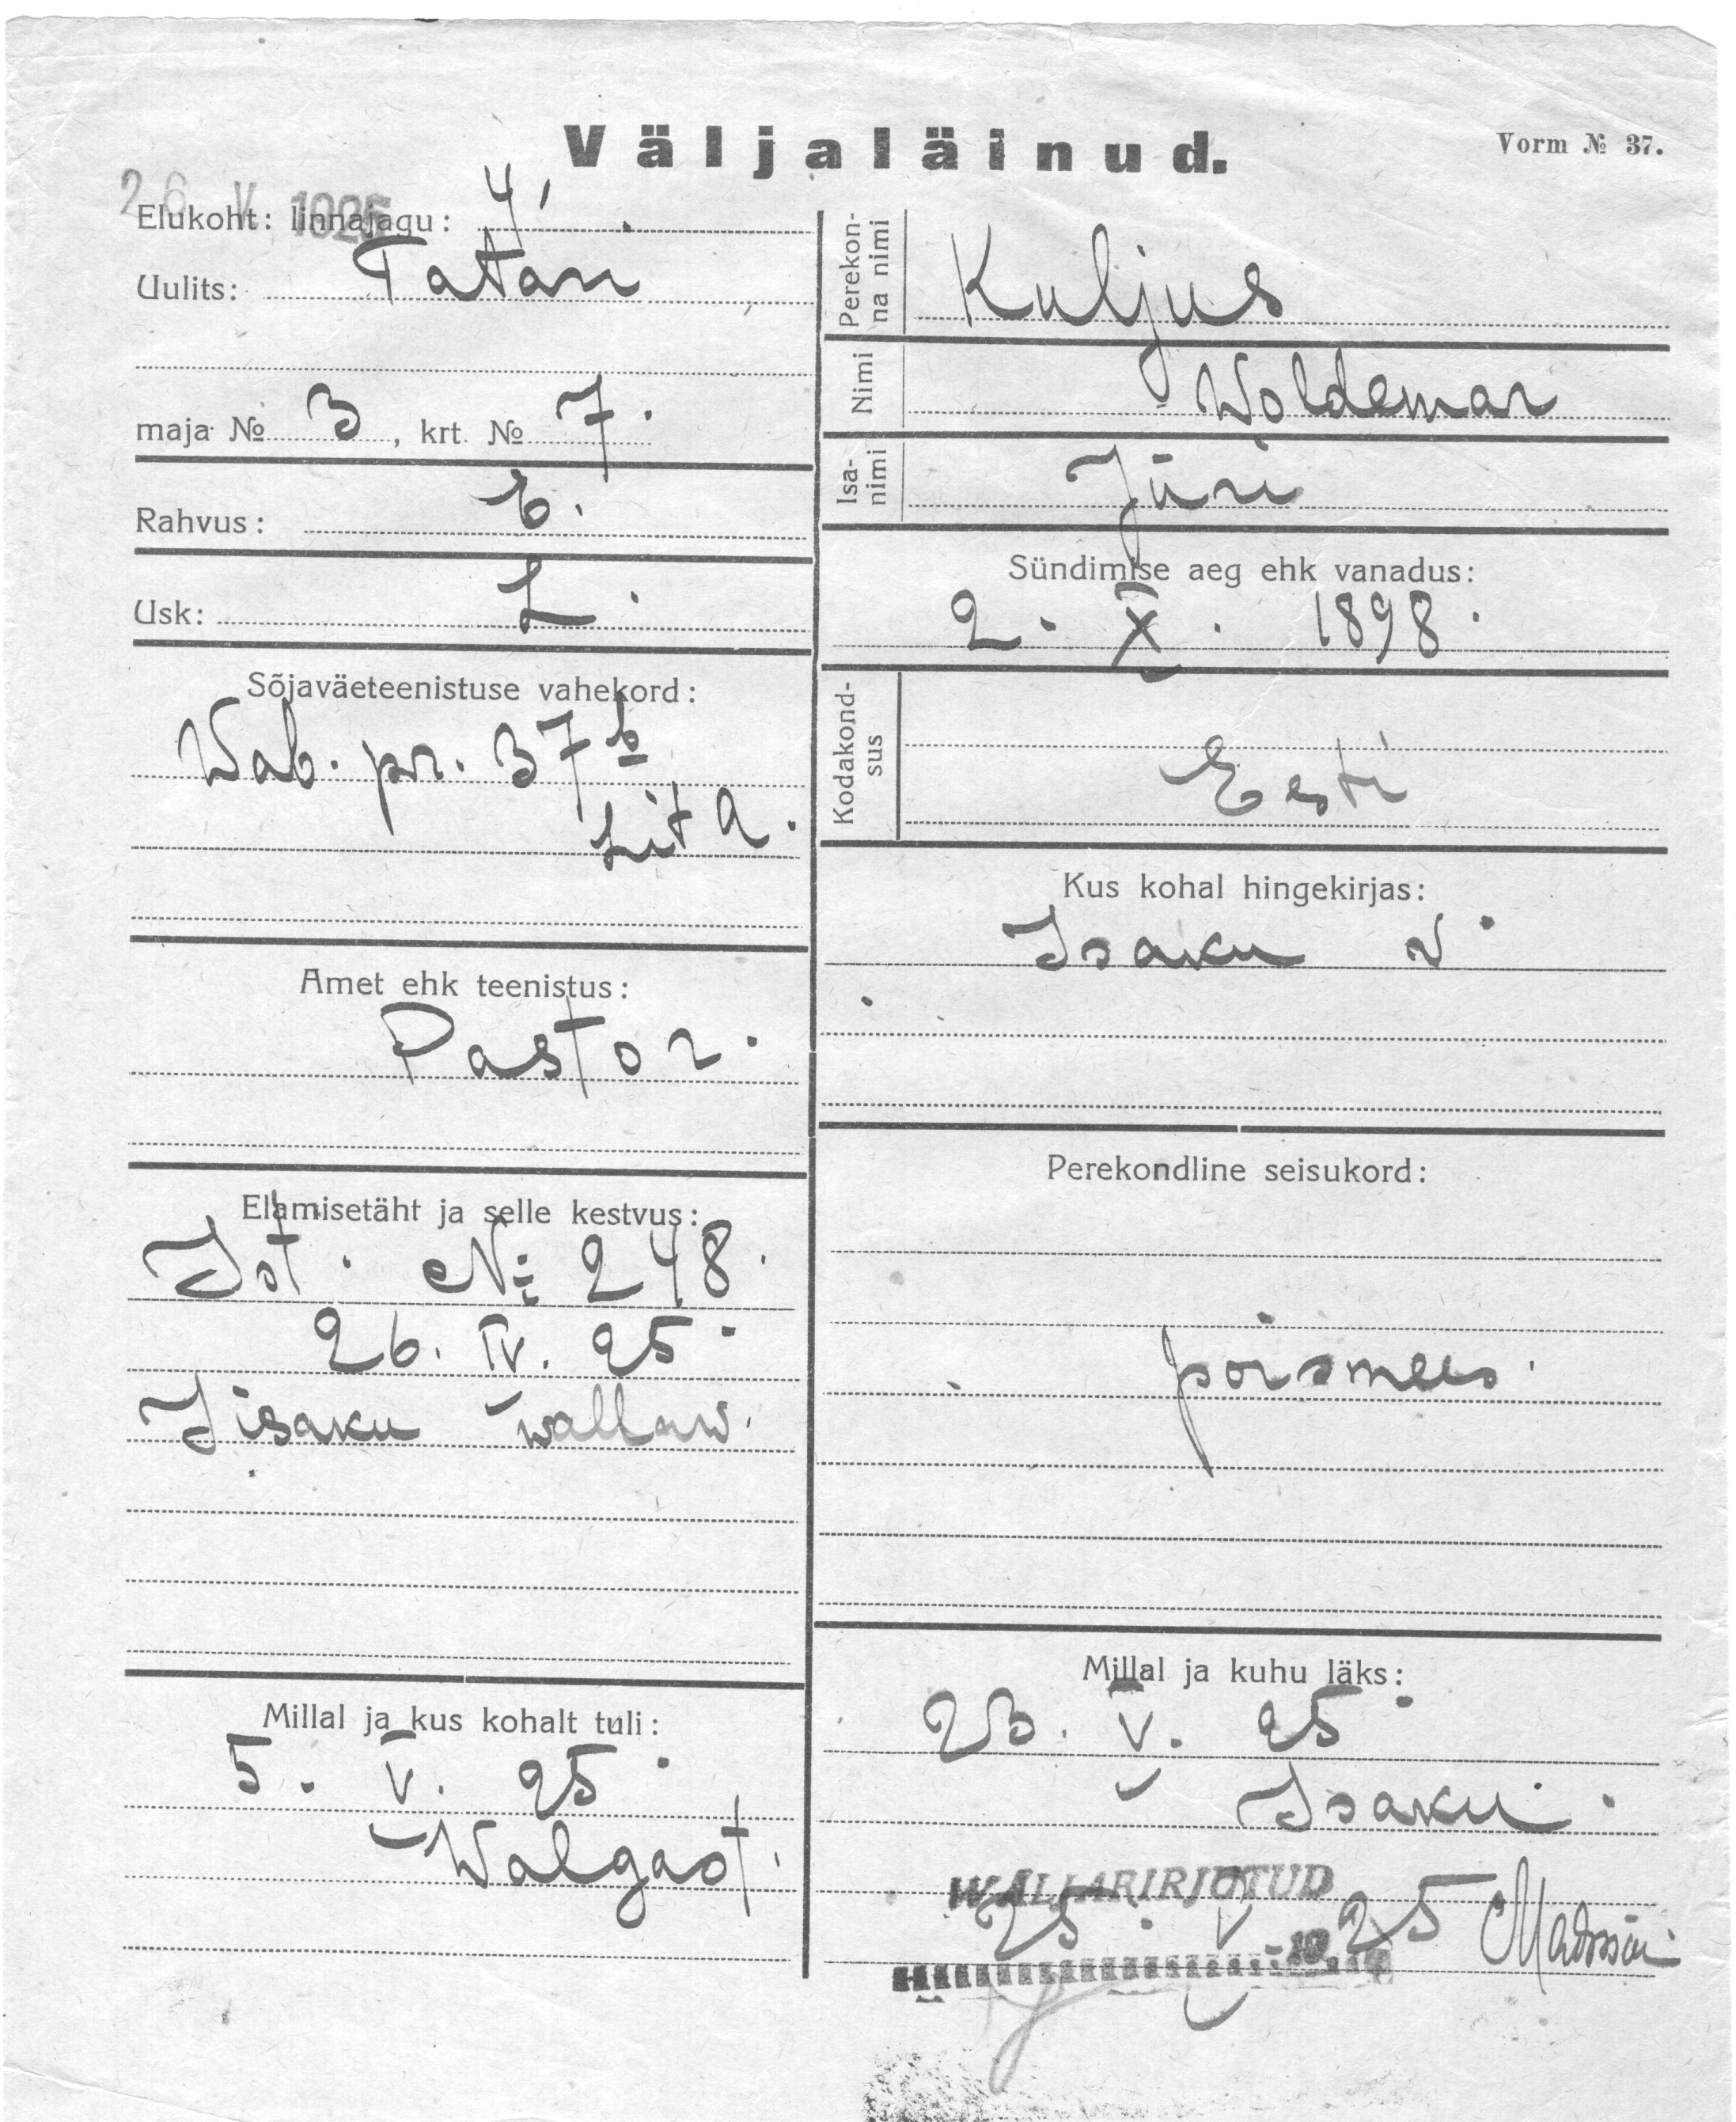 Väljaläinud.
Vorm № 37.
26 V 1925
Elukoht: linnajagu: 4,
Uulits: Tatari
maja № 3, krt. № 7.
Rahvus: E.
Usk: L.
Sõjaväeteenistuse vahekord:
Wab. pr. 37 b
Lit A.
Amet ehk teenistus:
Pastor.
Elamisetäht ja selle kestvus:
Ist. № 248.
26. IV. 25.
Jisaku wallaw.
Millal ja kus kohalt tuli:
5. V. 25.
Walgast.
Perekon-
na nimi
Kuljus
Nimi
Woldemar
Isa-
nimi
Jüri
Sündimise aeg ehk vanadus:
2. X. 1898.
Kodakond-
sus
Eesti
Kus kohal hingekirjas:
Isaku v.
Perekondline seisukord:
poismees.
Millal ja kuhu läks:
23. V. 25.
Isaku.
WÄLJAKIRJUTUD
25. V 25